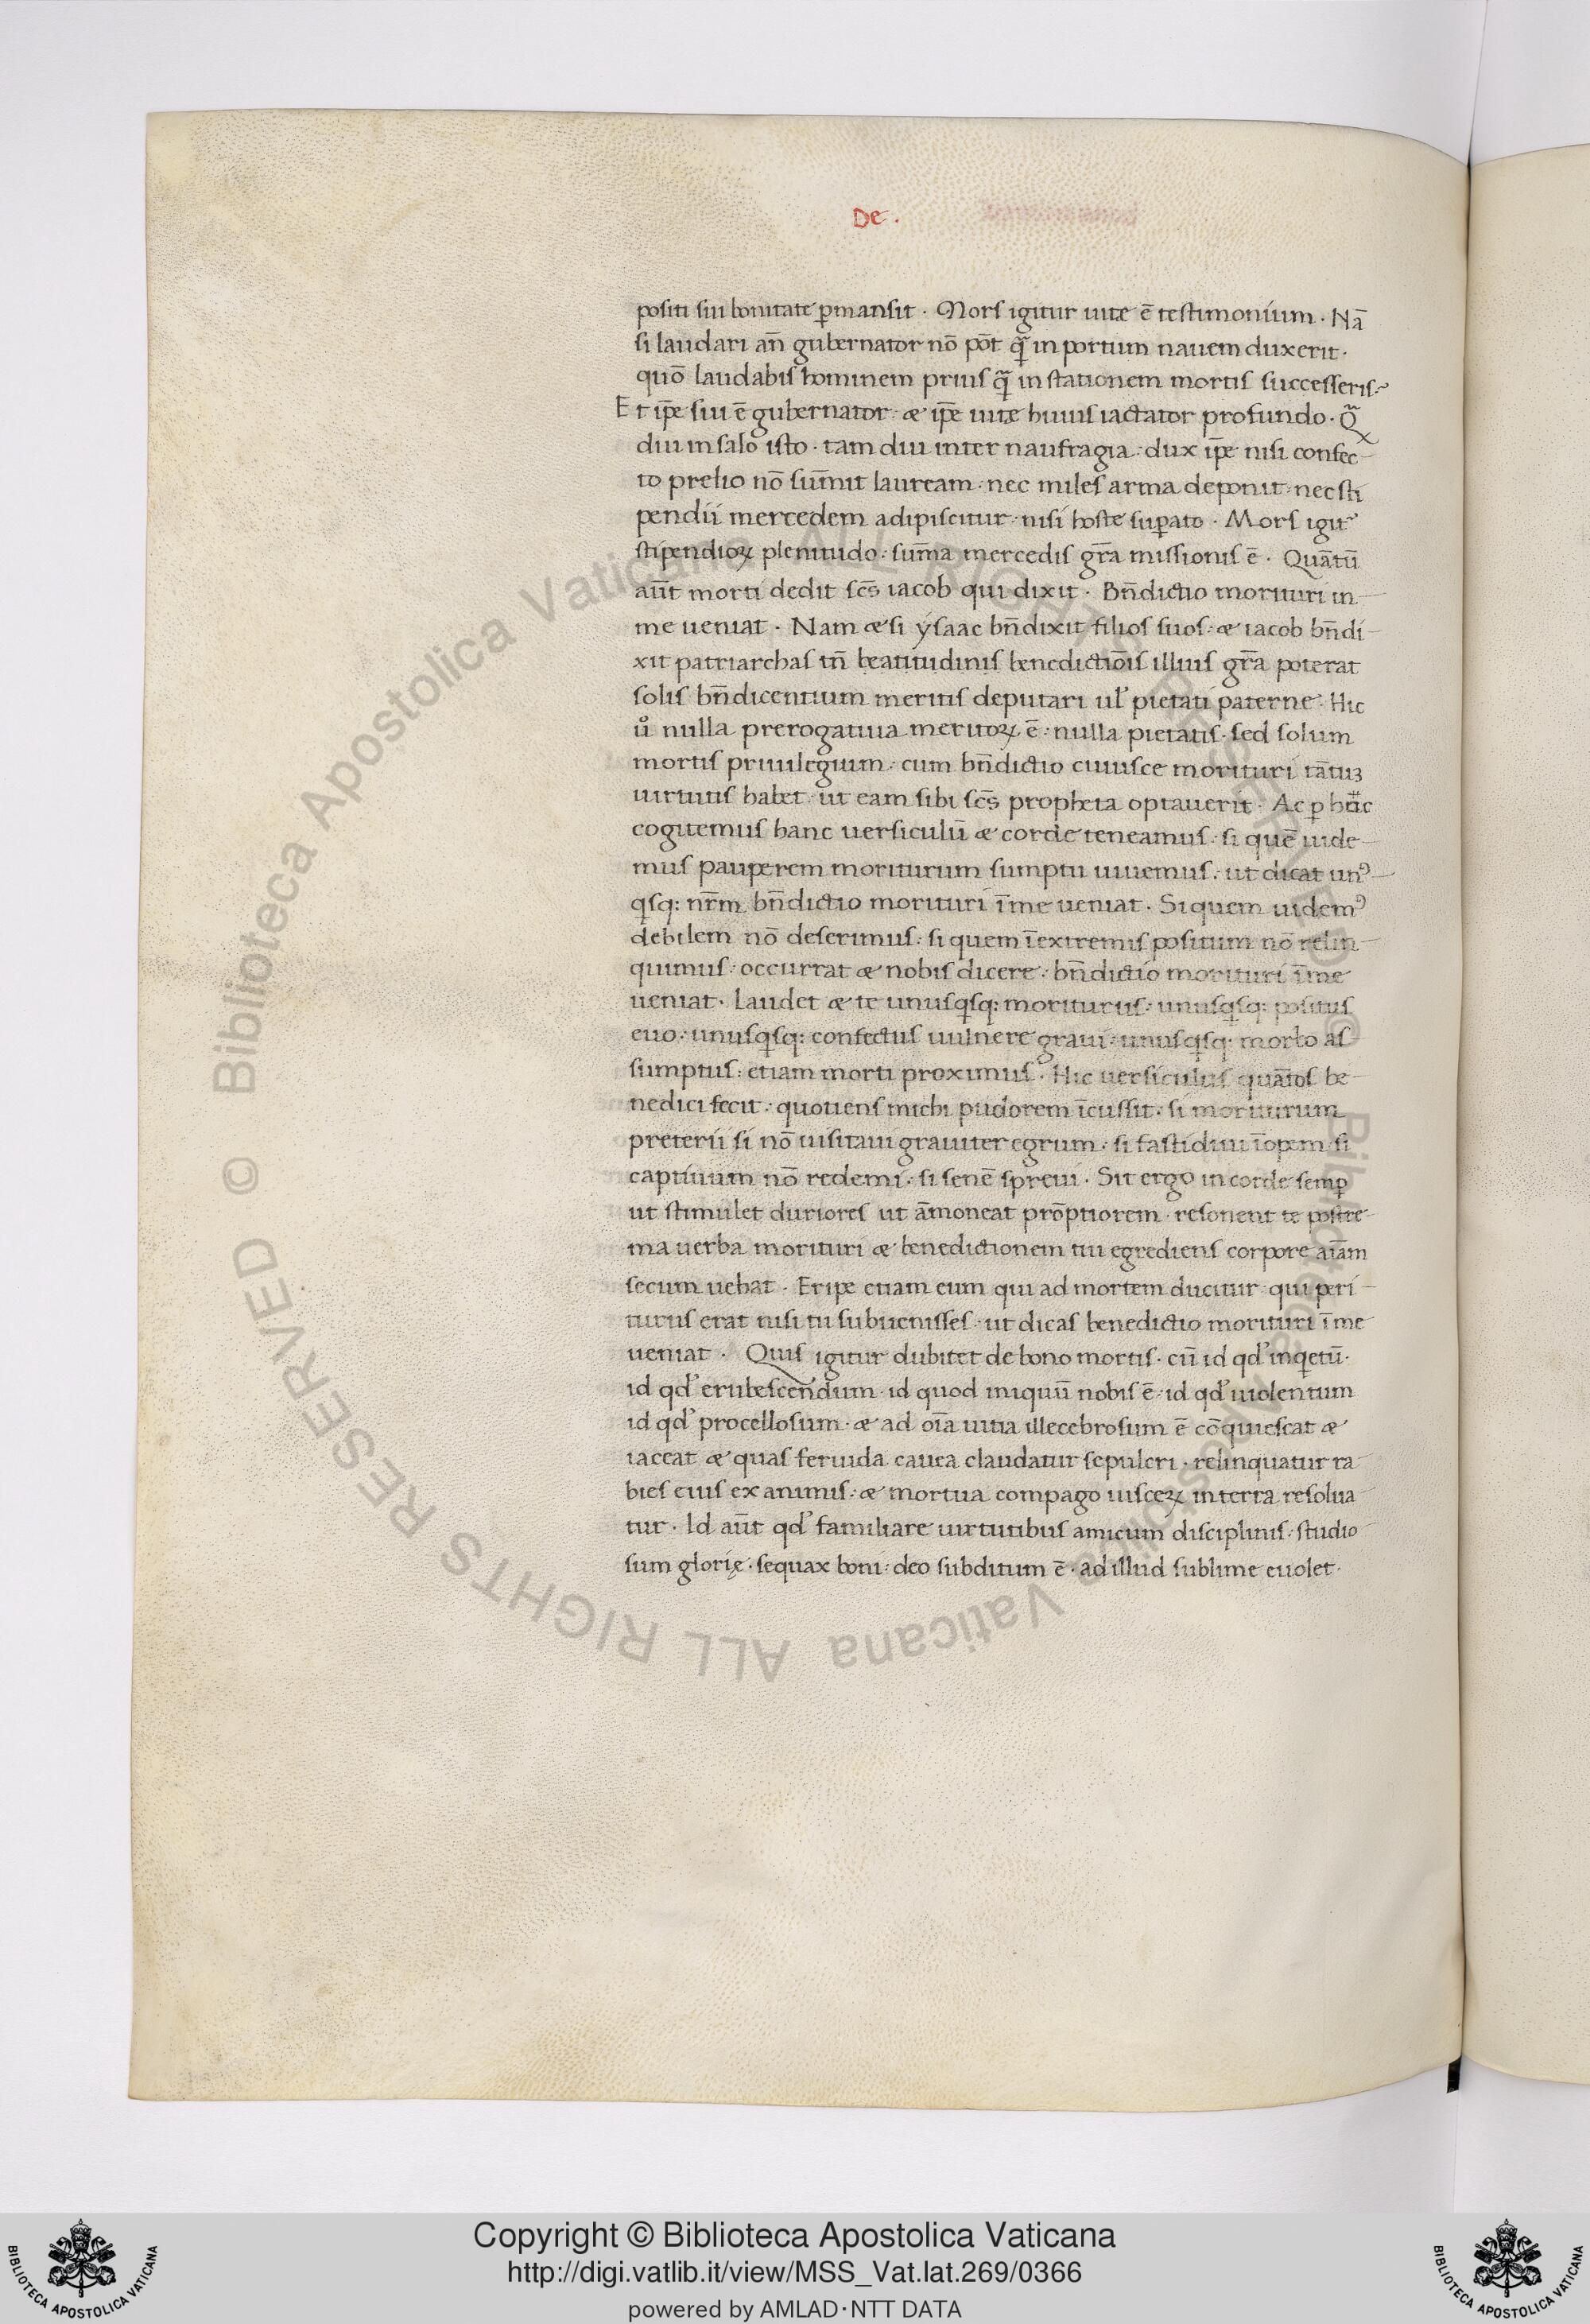 De.
positi sui bonitate ꝑmansit · Mors igitur uitæ ē testimonium · Nā
si laudari an̄ gubernator nō pōt q̄ in portum nauem duxerit ·
quō laudabis hominem prius q̄ in stationem mortis successeris ?
Et ip̄e sui ē gubernator : æ ip̄e uitæ huius iactator profundo · Q̄
diu in salo isto · tam diu inter naufragia : dux ip̄e nisi confec-
to prelio nō sum̄it lauream : nec miles arma deponit : nec sti
pendii mercedem adipiscitur : nisi hoste suꝑato · Mors igit᷑
stipendioꝝ plenitudo : sum̄a mercedis gr̄a missionis ē · Quātū
aūt morti dedit sc̄s iacob qui dixit · Bn̄dictio morituri in-
me ueniat · Nam æ si ẏsaac bn̄dixit filios suos : æ iacob bn̄di-
xit patriarchas tn̄ beatitudinis benedictiōis illius gr̄a poterat
solis bn̄dicentium meritis deputari ul᷑ pietati paterne · Hic
uͦ nulla prerogatiua meritoꝝ ē : nulla pietatis · sed solum
mortis priuilegium : cum bn̄dictio cuiusce morituri tātuꝫ
uirtutis habet : ut eam sibi sc̄s propheta optauerit · Ac ꝑ hāc
cogitemus hanc uersiculū æ corde teneamus : si quē uide-
mus pauperem moriturum sumptu iuuemus : ut dicat unꝰ-
qisq: nr̄m bn̄dictio morituri ī me ueniat · Si quem uidemꝰ
debilem nō deserimus : si quem ī extremis positum nō relin-
quimus : occurrat æ nobis dicere : bn̄dictio morituri ī me
ueniat · Laudet æ te unusqisq: moriturus : unusqisq: positus
euo : unusqisq: confectus uulnere graui : unusqisq: morbo as-
sumptus : etiam morti proximus · Hic uersiculus quātos be-
nedici fecit : quotiens michi pudorem īcussit · si moriturum
preterii si nō uisitaui grauiter egrum : si fastidiui īopem : si
captiuum nō redemi · si senē spreui · Sit ergo in corde semꝑ
ut stimulet duriores ut āmoneat prōptiorem · resonent te postre-
ma uerba morituri æ benedictionem tui egrediens corpore aiām
secum uehat · Eripe etiam eum qui ad mortem ducitur : qui peri-
turus erat nisi tu subuenisses · ut dicas benedictio morituri ī me
ueniat · Quis igitur dubitet de bono mortis · cū id qd᷑ inqietū ·
id qd᷑ erubescendum · id quod iniquū nobis ē : id qd᷑ uiolentum
id qd᷑ procellosum · æ ad oīa uitia illecebrosum ē cōquiescat æ
iaceat æ quas feruida cauea claudatur sepulcri · relinquatur ra
bies eius ex animis : æ mortua compago uisceꝝ in terra resolua
tur · Id aūt qd᷑ familiare uirtutibus amicum disciplinis : studio
sum glorię · sequax boni : deo subditum ē · ad illud sublime euolet ·
Copyright © Biblioteca Apostolica Vaticana
http://digi.vatlib.it/view/MSS_Vat.lat.269/0366
powered by AMLAD·NTT DATA
BIBLIOTECA APOSTOLICA VATICANA
BIBLIOTECA APOSTOLICA VATICANA
© Biblioteca Apostolica Vaticana ALL RIGHTS RESERVED © Biblioteca Apostolica Vaticana ALL RIGHTS RESERVED